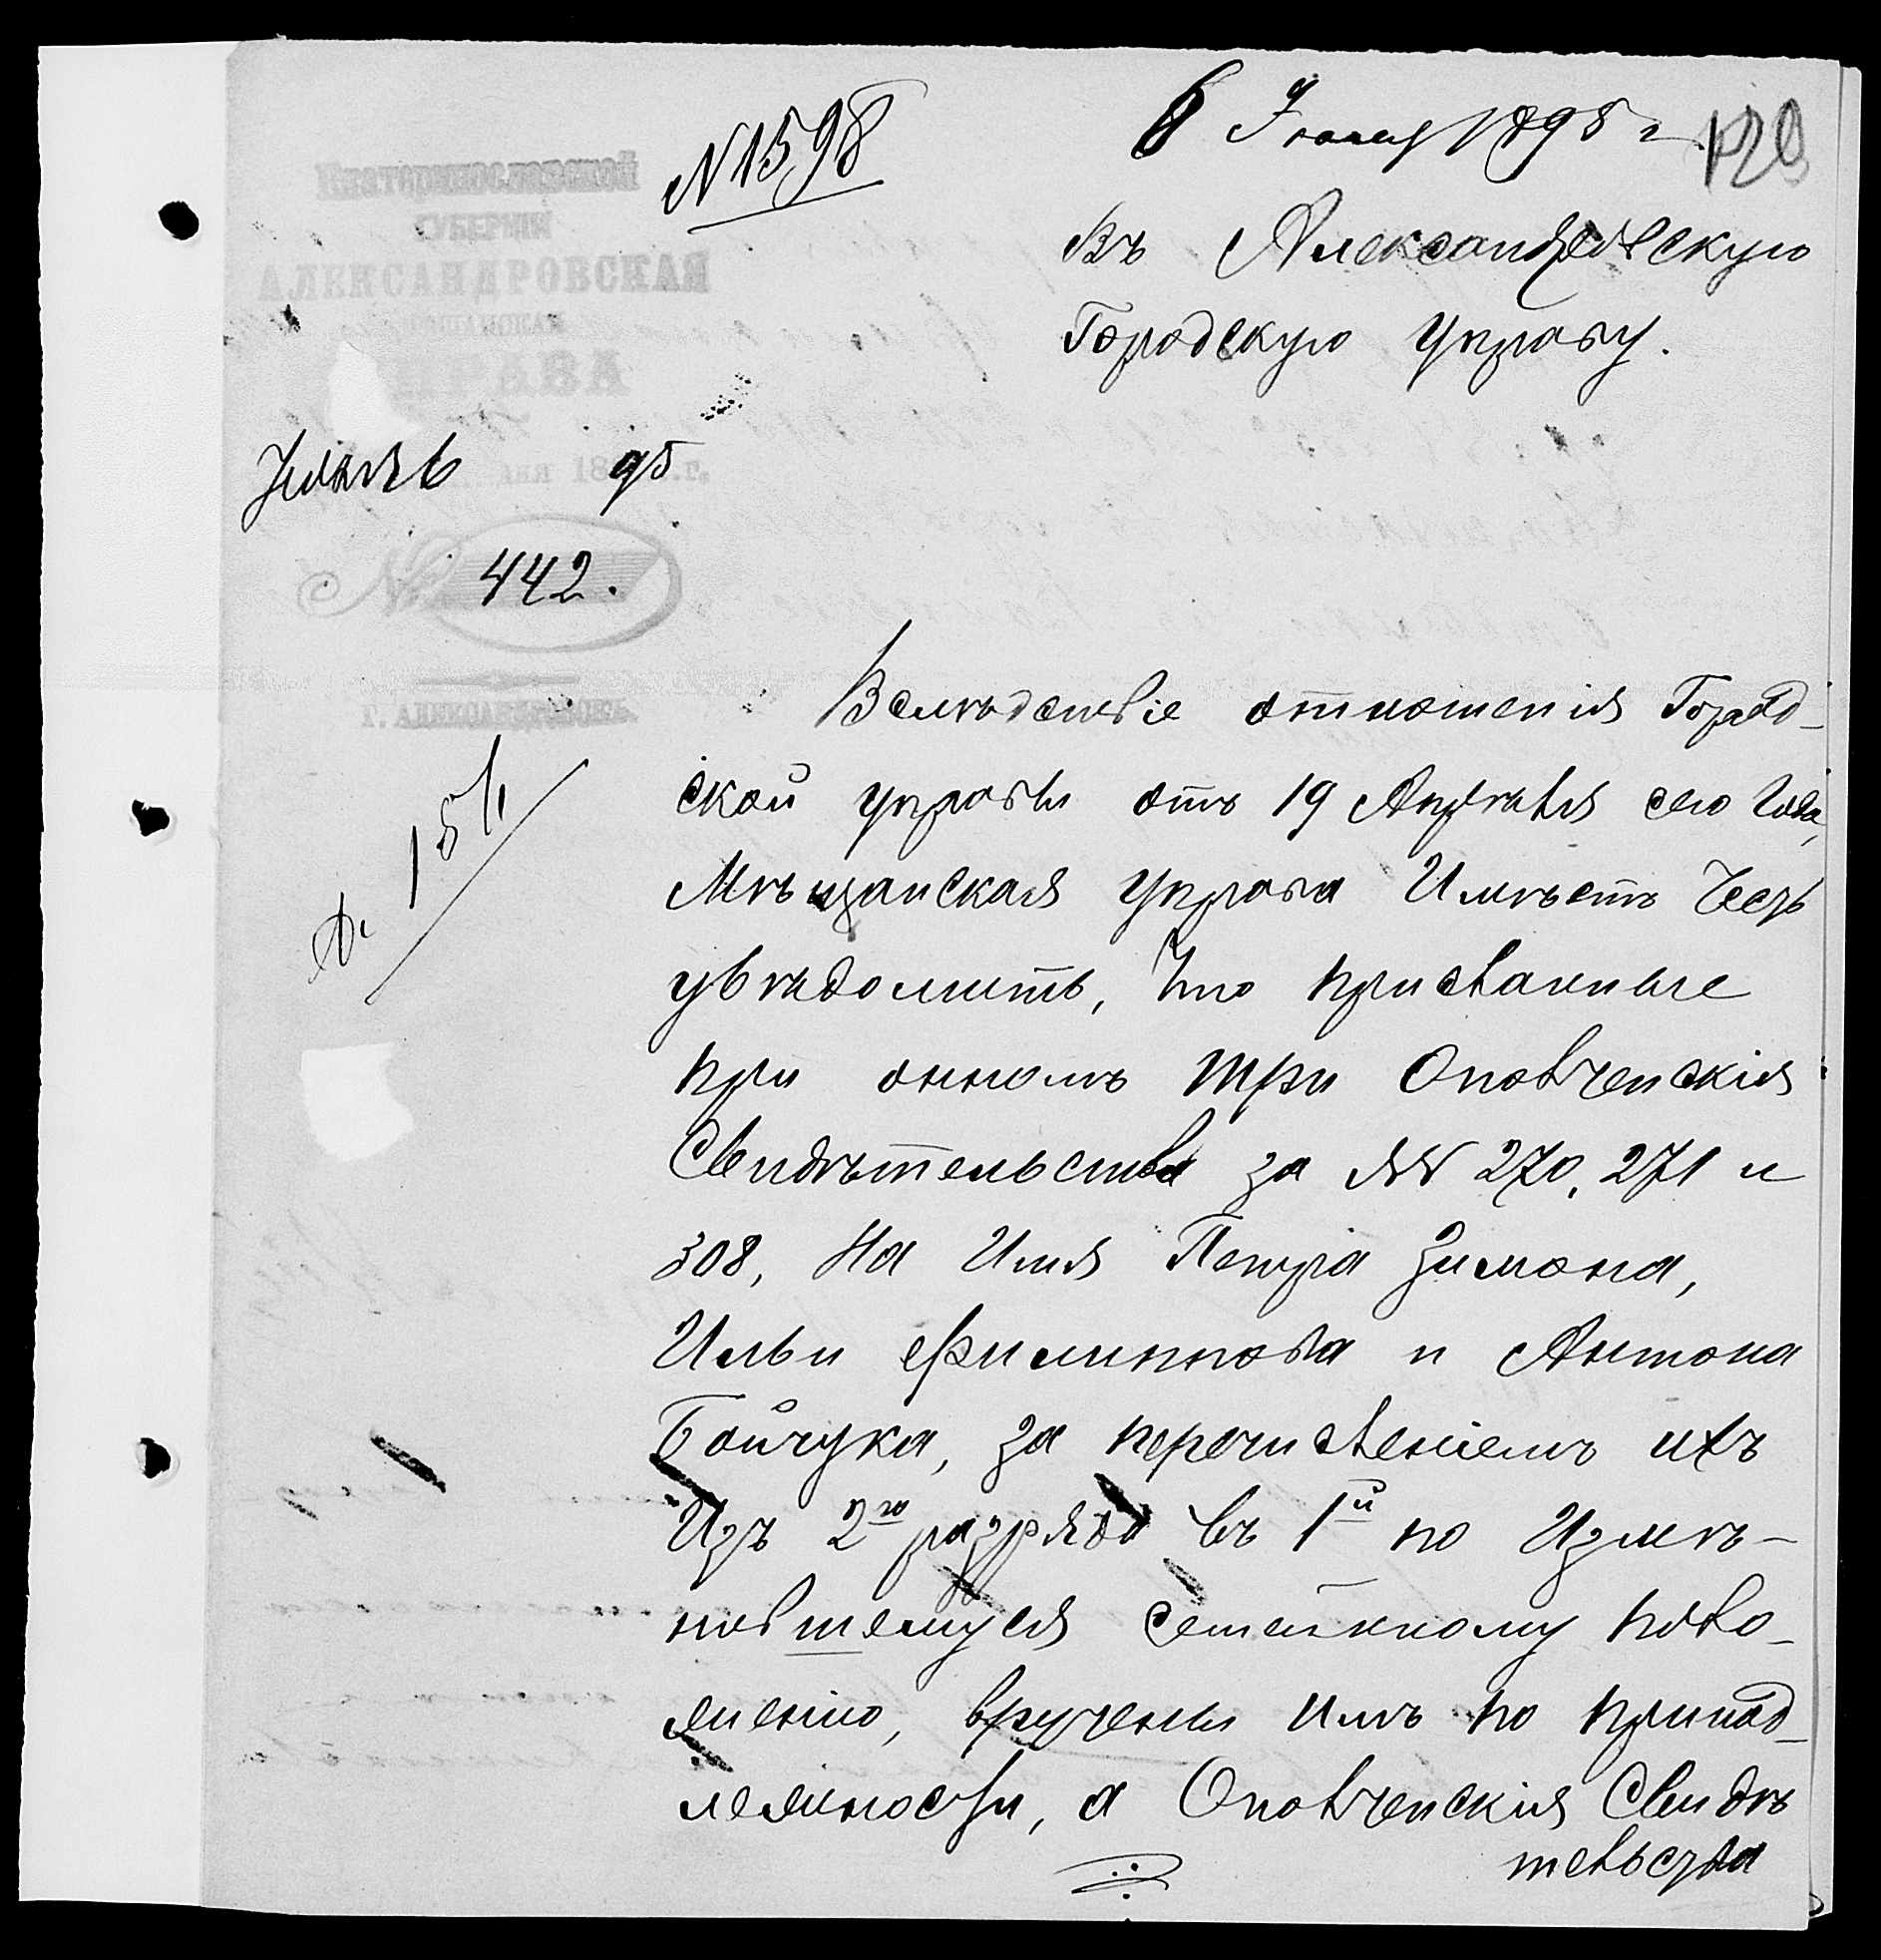 №1598
6 Іюня 1895 г.
120
Екатеринославской
ГУБЕРНІИ
АЛЕКСАНДРОВСКАЯ
МѢЩАНСКАЯ
УПРАВА
95
дня 18 г.
№ 442.
Г. АЛЕКСАНДРОВСКЪ.
Въ Александровскую
Городскую Управу.
Вслѣдствіе отношенія Город-
ской управы отъ 19 Апрѣля сего года,
Мѣщанская Управа Имѣетъ Честь
увѣдомить, Что присланные
при ономъ три Ополченскія
Свидѣтельства за №№ 270, 271 и
308, На Имя Петра Зимона,
Ильи Филиппова и Антона
Бойчука, за перечисленіемъ ихъ
Изъ 2го разряда въ 1й по Измѣ-
нившемуся семейному поло-
женію, вручены имъ по принад-
лежности, а Ополченскія Свидѣ
тельства